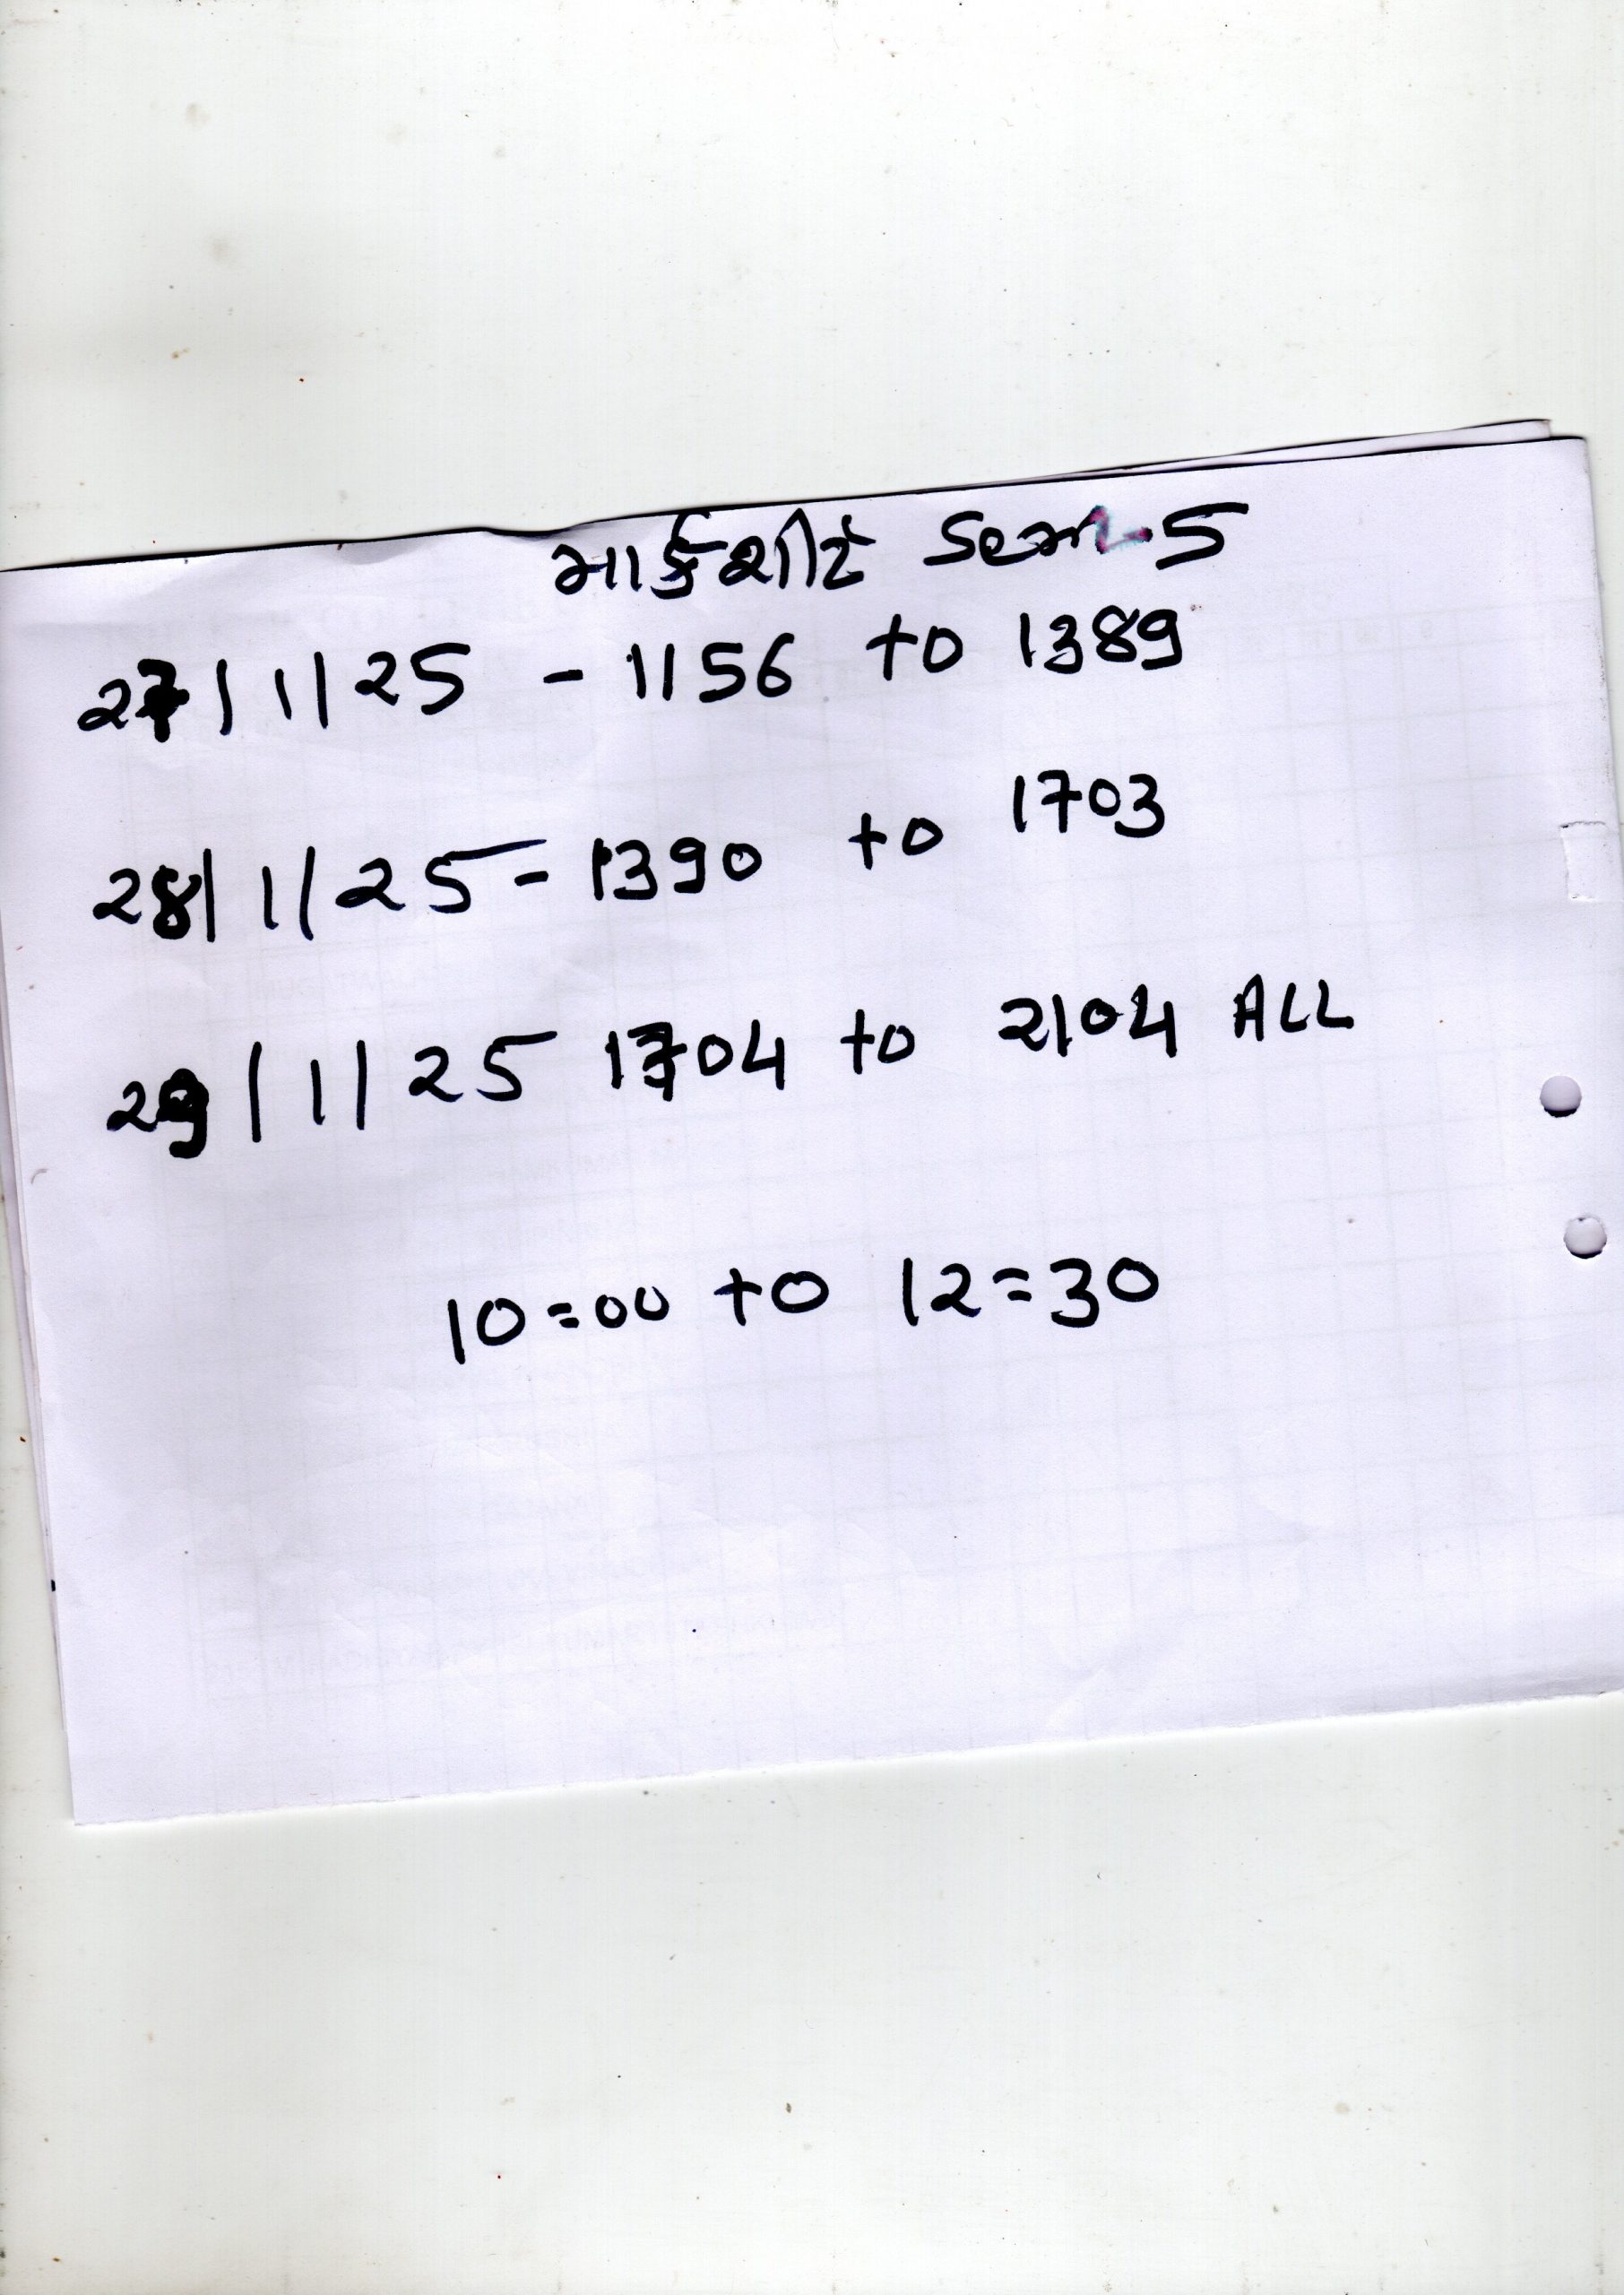 માર્કશીટ Sem-5
27/1/25 - 1156 to 1389
28/1/25 - 1390 to 1703
29/1/25 1704 to 2104 ALL
10=00 to 12=30